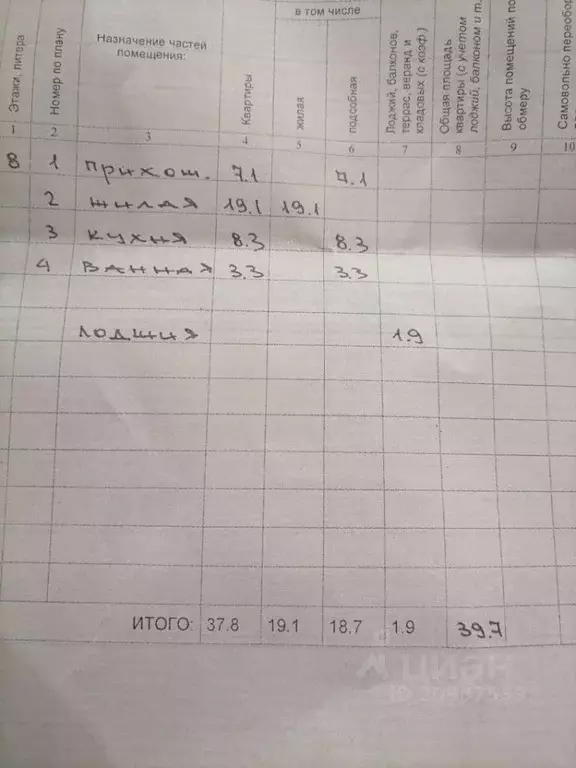 в том числе
Этажи, литера
Номер по плану
Назначение частей
помещения:
Квартиры
жилая
подсобная
Лоджий, балконов,
террас, веранд и
кладовых (с коэф.)
Общая площадь
квартиры (с учетом
лоджий, балконом и т.
Высота помещений по
обмеру
Самовольно переобор
1 2 3 4 5 6 7 8 9 10
8 1 прихош. 7.1 7.1
2 жилая 19.1 19.1
3 кухня 8.3 8.3
4 ванная 3.3 3.3
лоджия 1.9
ИТОГО: 37.8 19.1 18.7 1.9 39.7
циан